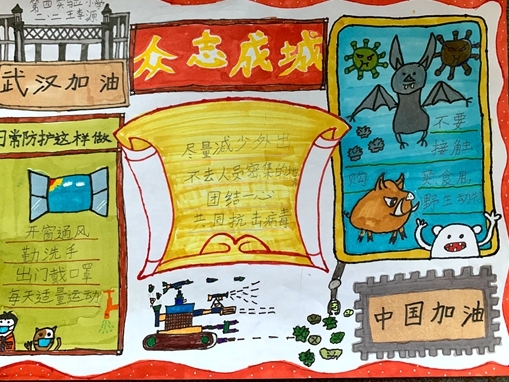 第四实验小学
二.二
武汉加油
众志成城
日常防护这样做
开窗通风
勤洗手
出门戴口罩
每天适量运动
尽量减少外出
不去人员密集的地
团结一心
共同抗击病毒
不要
接触
购 买食用
野生动物
中国加油